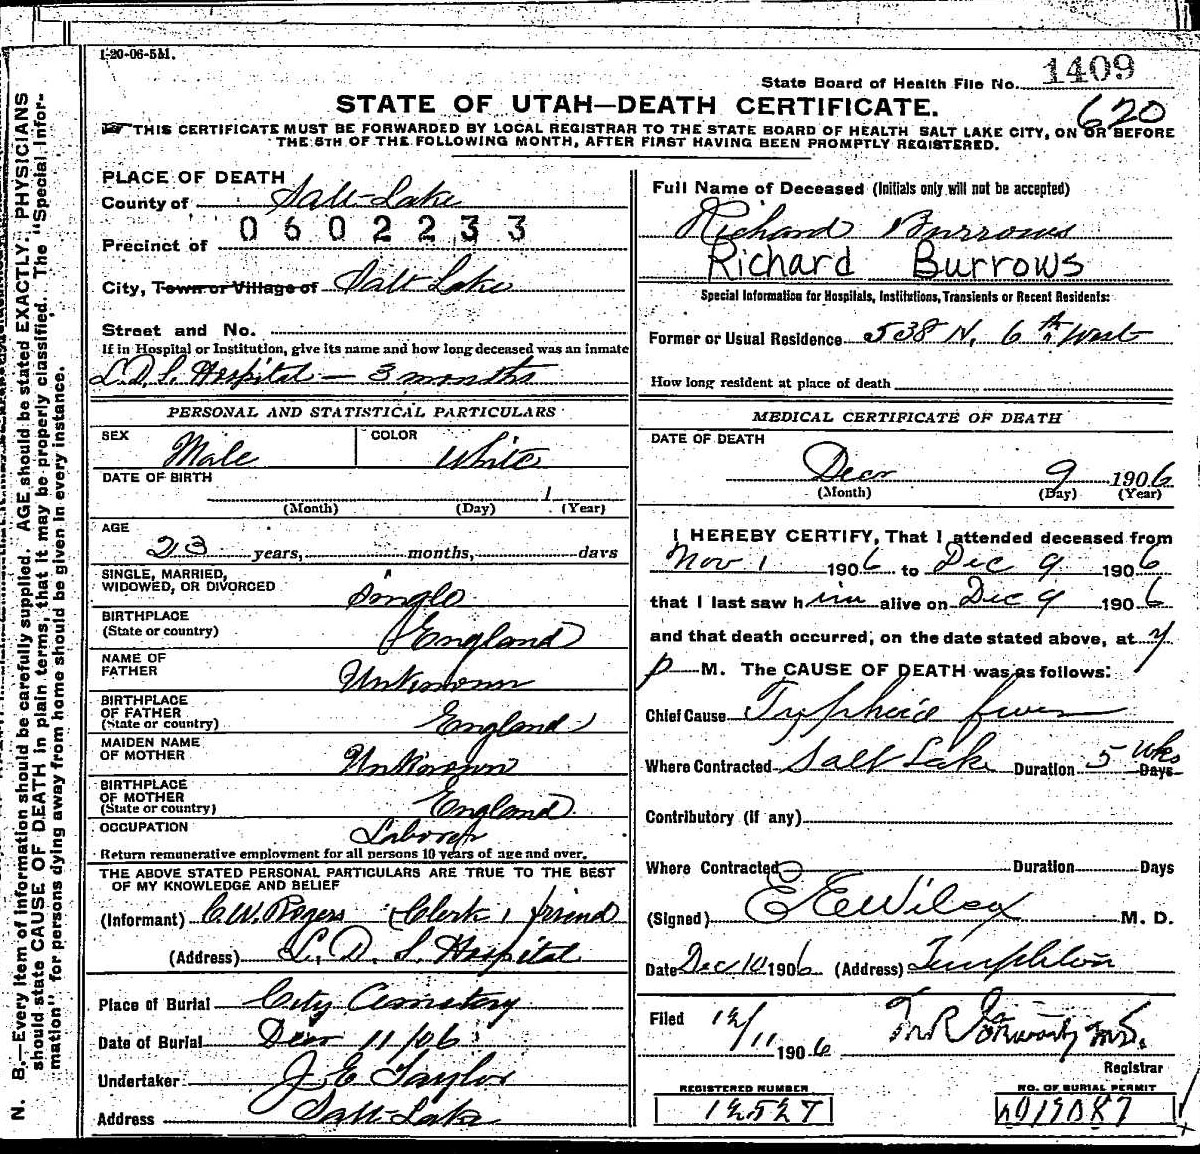 1-20-06-5M.
State Board of Health File No. 1409
620
STATE OF UTAH—DEATH CERTIFICATE.
THIS CERTIFICATE MUST BE FORWARDED BY LOCAL REGISTRAR TO THE STATE BOARD OF HEALTH SALT LAKE CITY, ON OR BEFORE
THE 5TH OF THE FOLLOWING MONTH, AFTER FIRST HAVING BEEN PROMPTLY REGISTERED.
N. B.—Every Item of information should be carefully supplied. AGE should be stated EXACTLY. PHYSICIANS
should state CAUSE OF DEATH in plain terms, that it may be properly classified. The "Special Infor-
mation" for persons dying away from home should be given in every instance.
PLACE OF DEATH
County of Salt Lake
0602233
Precinct of
City, Town or Village of Salt Lake
Street and No.
If in Hospital or Institution, give its name and how long deceased was an inmate
L.D.S. Hospital — 3 months
PERSONAL AND STATISTICAL PARTICULARS
SEX Male COLOR White
DATE OF BIRTH 1
(Month) (Day) (Year)
AGE
23 years, months, days
SINGLE, MARRIED,
WIDOWED, OR DIVORCED Single
BIRTHPLACE
(State or country) England
NAME OF
FATHER Unknown
BIRTHPLACE
OF FATHER
(State or country) England
MAIDEN NAME
OF MOTHER Unknown
BIRTHPLACE
OF MOTHER
(State or country) England
OCCUPATION Laborer
Return remunerative employment for all persons 10 years of age and over.
THE ABOVE STATED PERSONAL PARTICULARS ARE TRUE TO THE BEST
OF MY KNOWLEDGE AND BELIEF
(Informant) C.W. Rogers (Clerk, friend
(Address) L. D. S. Hospital
Place of Burial City Cemetery
Date of Burial Decr 11/06
Undertaker J E Taylor
Address Salt Lake
Full Name of Deceased (Initials only will not be accepted)
Richard Burrows
Richard Burrows
Special Information for Hospitals, Institutions, Transients or Recent Residents:
Former or Usual Residence 538 N. 6th West
How long resident at place of death
MEDICAL CERTIFICATE OF DEATH
DATE OF DEATH
Decr 9 1906
(Month) (Day) (Year)
I HEREBY CERTIFY, That I attended deceased from
Nov 1 1906 to Dec 9 1906
that I last saw him alive on Dec 9 1906
and that death occurred, on the date stated above, at
p M. The CAUSE OF DEATH was as follows:
Chief Cause Typhoid fever
Where Contracted Salt Lake Duration 5 wks Days
Contributory (if any)
Where Contracted Duration Days
(Signed) E E Wilcox M. D.
Date Dec 10 1906 (Address) Templeton
Filed 12/11 1906
Registrar
REGISTERED NUMBER
12527
NO. OF BURIAL PERMIT